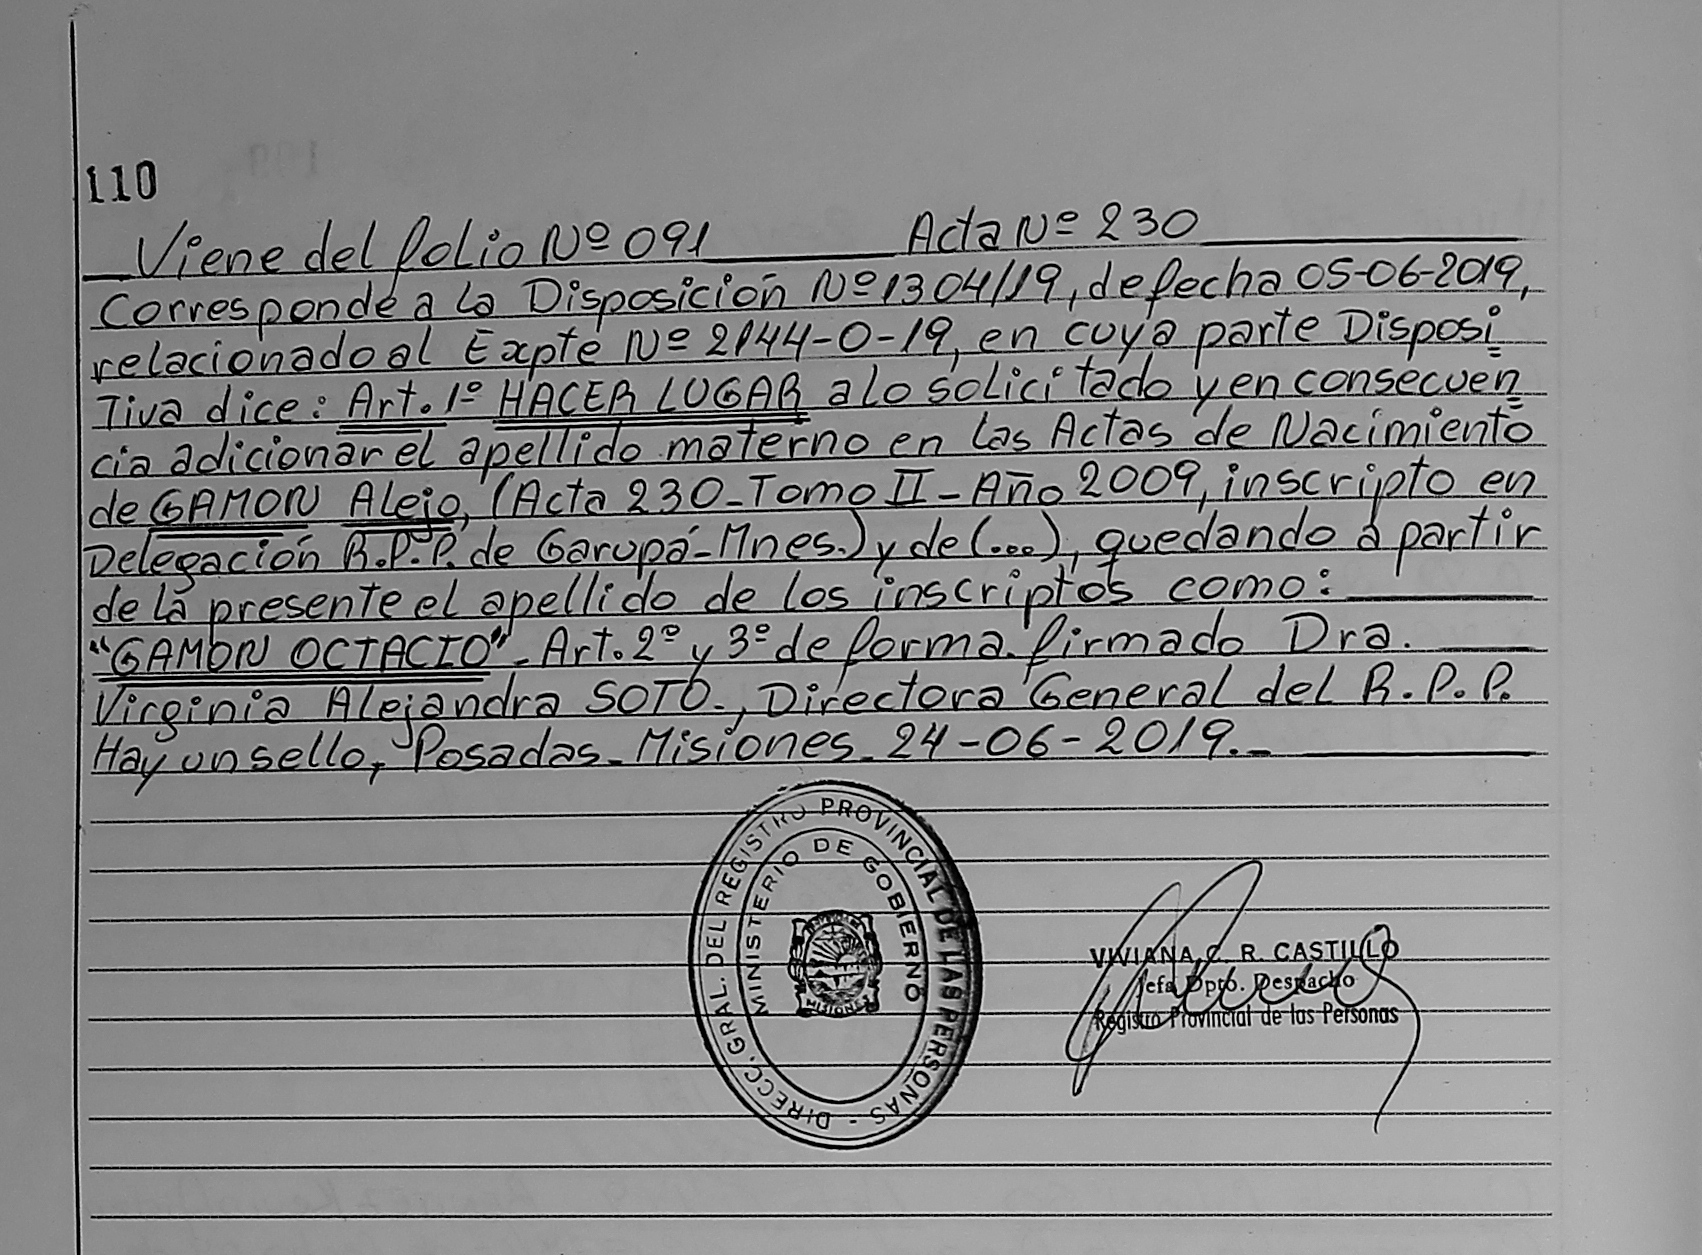 110
Viene del folio Nº 091 Acta Nº 230
Corresponde a la Disposición Nº 1304/19, de fecha 05-06-2019,
relacionado al Expte Nº 2144-O-19, en cuya parte Disposi
Tiva dice: Art. 1º HACER LUGAR a lo solicitado y en consecuen
cia adicionar el apellido materno en las Actas de Nacimiento
de GAMON Alejo, (Acta 230-Tomo II-Año 2009, inscripto en
Delegación R.P.P. de Garupá-Mnes.) y de (...), quedando a partir
de la presente el apellido de los inscriptos como:
"GAMON OCTACIO". Art. 2º y 3º de forma. firmado Dra.
Virginia Alejandra SOTO., Directora General del R.P.P.
Hay un sello, Posadas-Misiones-24-06-2019.-
DIRECC. GRAL. DEL REGISTRO PROVINCIAL DE LAS PERSONAS -
MINISTERIO DE GOBIERNO
MISIONES
VIVIANA C. R. CASTILLO
Jefa Dpto. Despacho
Registro Provincial de las Personas